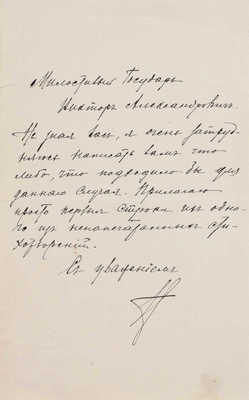 Милостивый Государь
Викторъ Александровичъ.
Не зная васъ, я очень затруд-
няюсь написать вамъ что
либо, что подходило бы для
даннаго случая. Прилагаю
просто первыя строки изъ одно-
го изъ ненапечатанныхъ сти-
хотвореній.
Съ уваженіемъ